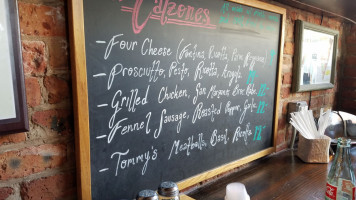 Calzones
– Four Cheese (Fontina, Ricotta, Parm,
– Prosciutto, Pesto, Ricotta, Arugula
– Grilled Chicken, San Marzano,
– Fennel Sausage, Roasted Pepper, Garlic
– Tommy's Meatballs, Basil, Ricotta